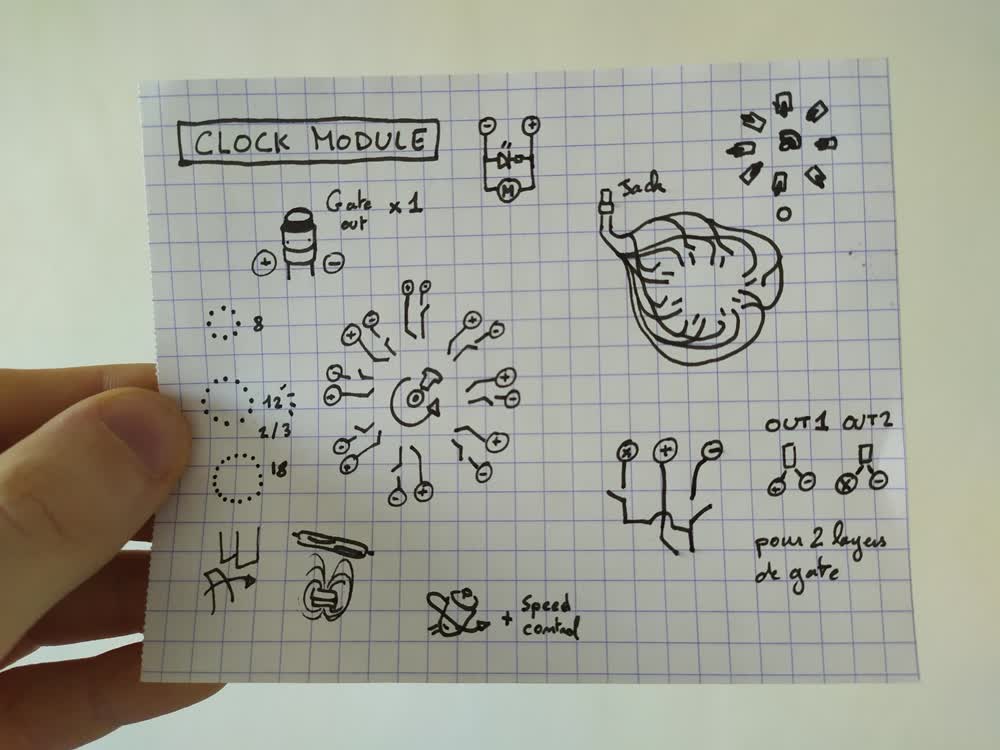 CLOCK MODULE
Gate x 1
out
Jack
8
12
2/3
18
OUT1 OUT2
pour 2 layers
de gate
+ Speed
control